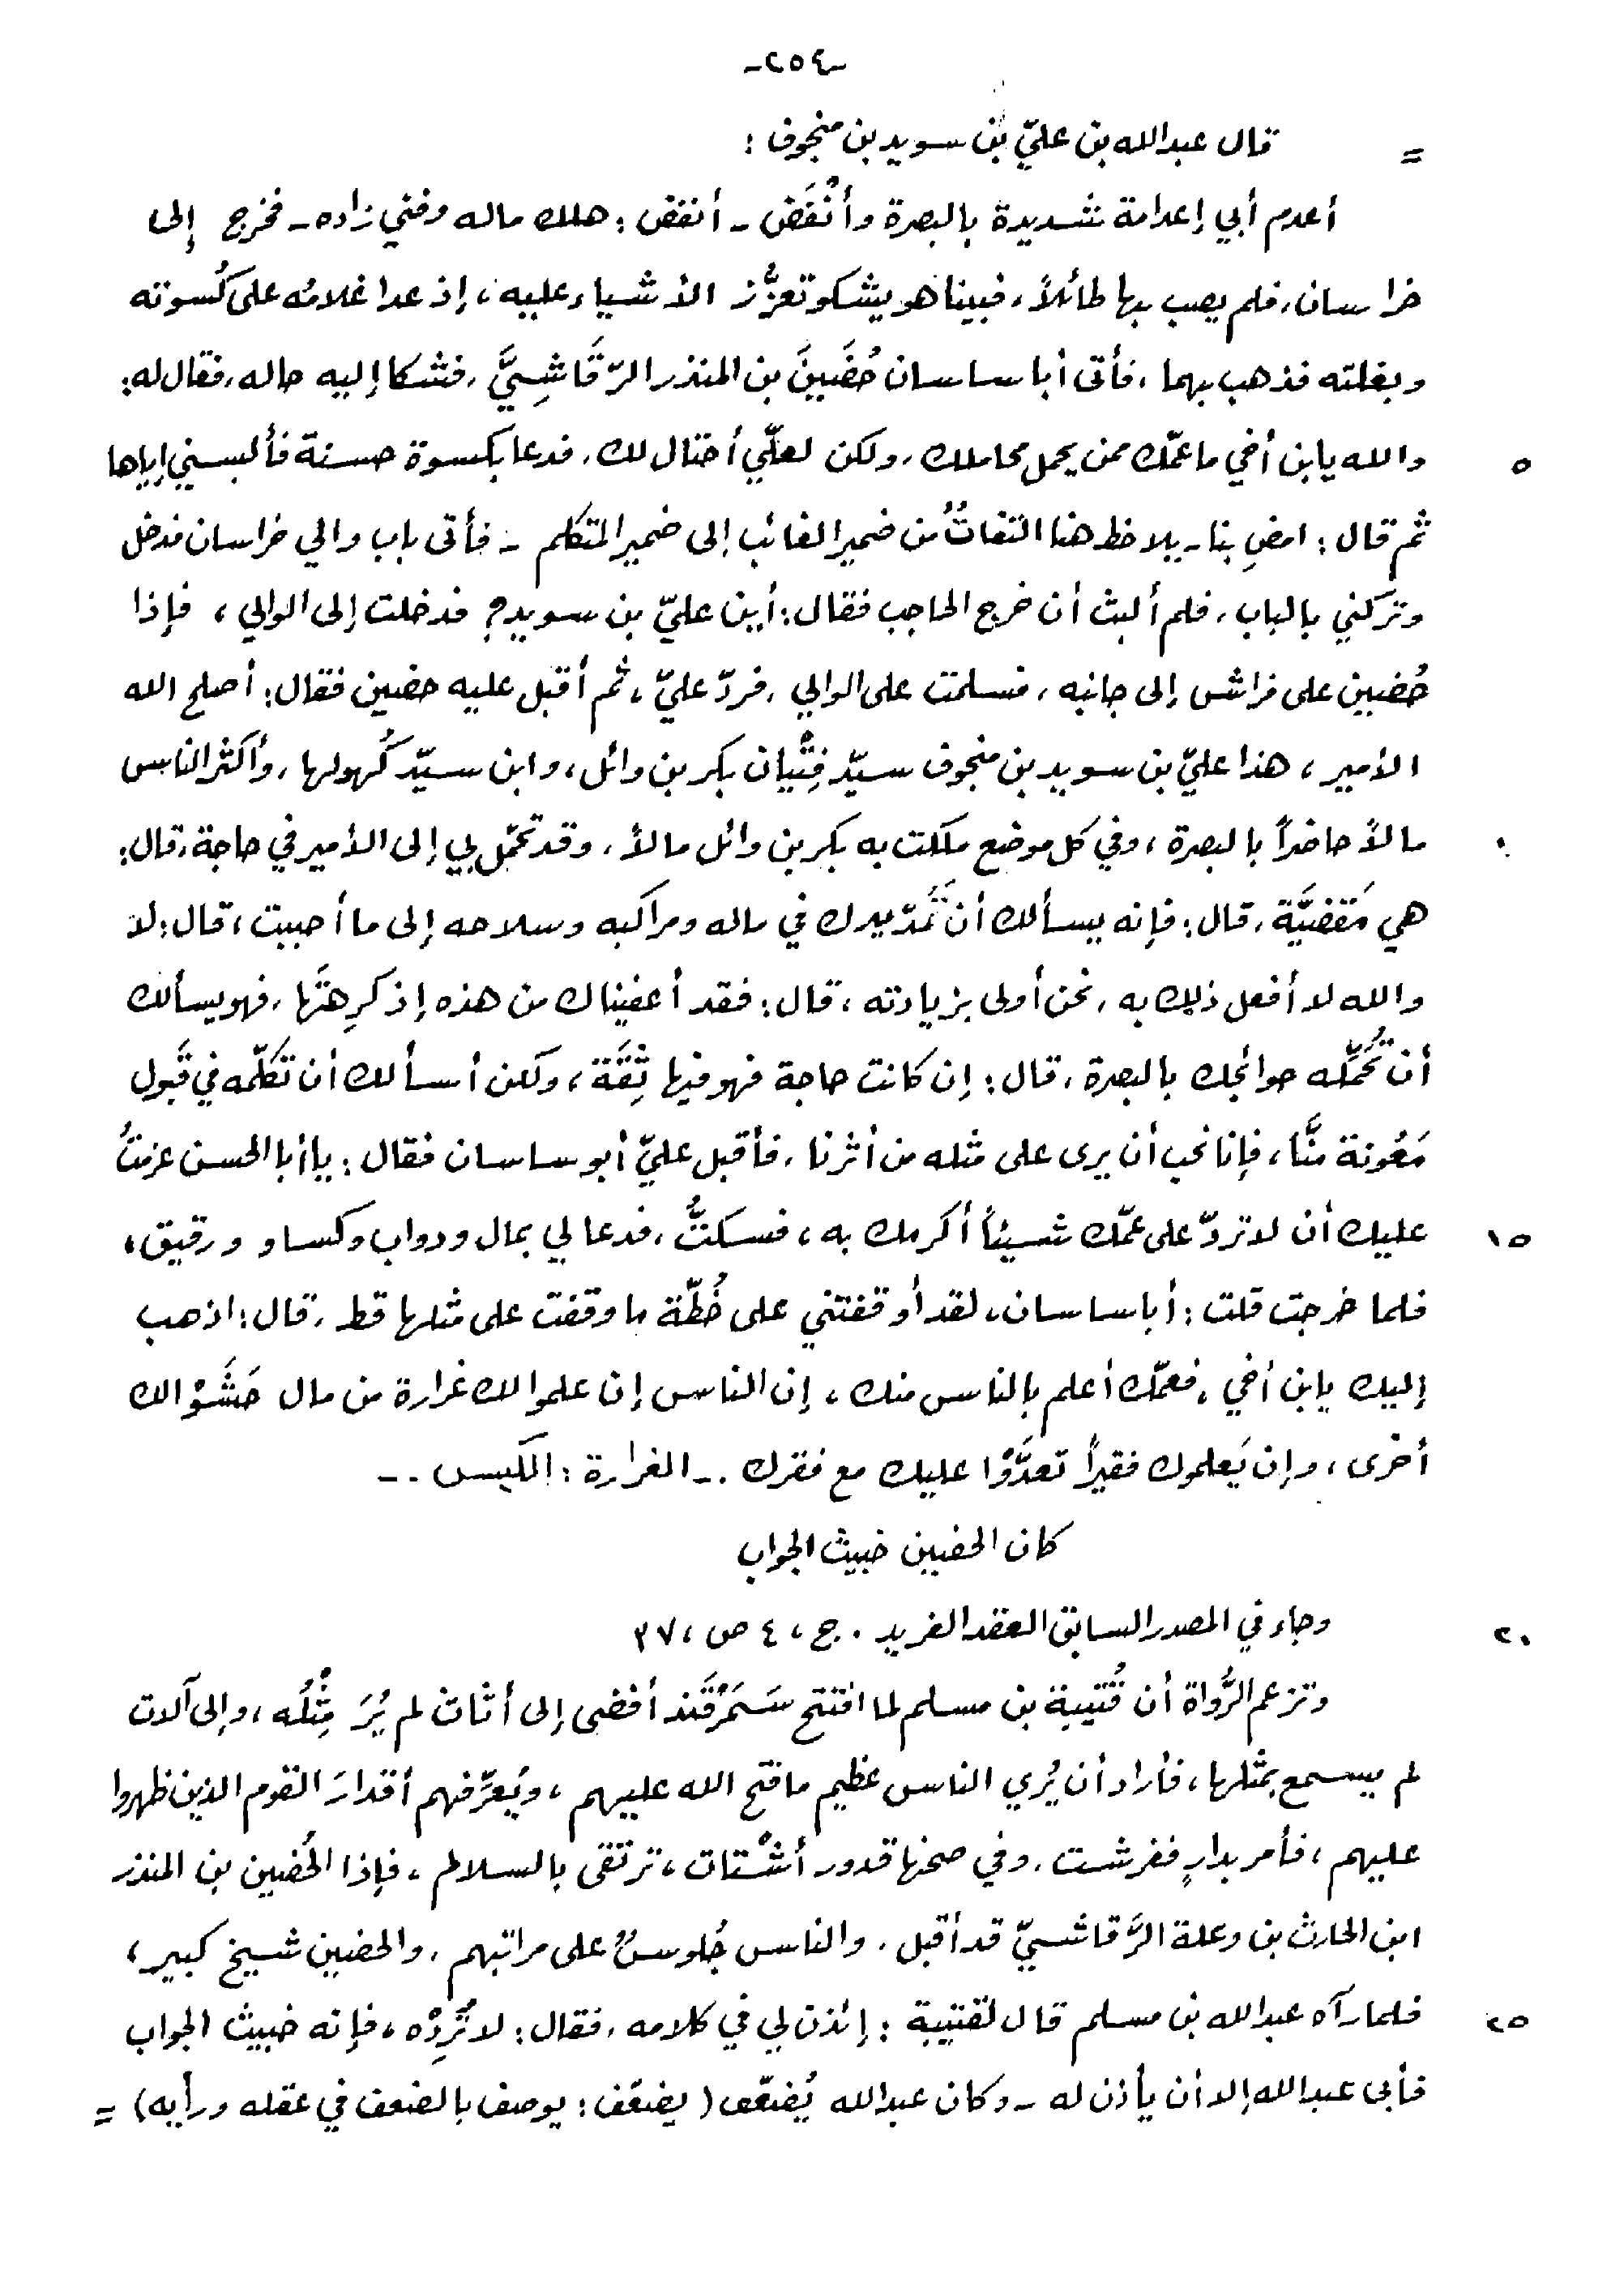 -٢٥٤-
= قال عبدالله بن عليّ بن سويد بن منجوف :
أعدم أبي إعدامة شديدة بالبصرة وأُنْفَض - أنفض : هلك ماله وفني زاده - فخرج إلى
خراسان، فلم يصب بها طائلاً، فبينا هو يشكو تعزُّز الأشياء عليه، إذ عدا غلامُه على كُسوته
وبغلته فذهب بهما، فأتى أبا ساسان حُضَينَ بن المنذر الرّقَاشِيَّ، فشكا إليه حاله، فقال له:
٥ والله يابن أخي ما عمّك ممن يحمل محاملك، ولكن لعلّي أحتال لك، فدعا بكسوة حسنة فألبسني إياها
ثم قال : امضِ بنا - يلاحظ هنا التفاتٌ من ضمير الغائب إلى ضمير المتكلم - فأتى باب والي خراسان فدخل
وتركني بالباب، فلم ألبث أن خرج الحاجب فقال: أين عليّ بن سويد؟ فدخلت إلى الوالي، فإذا
حُضين على فراش إلى جانبه، فسلمت على الوالي، فردّ عليّ، ثم أقبل عليه حضين فقال: أصلح الله
الأمير، هذا عليّ بن سويد بن منجوف سيّد فِتْيان بكر بن وائل، وابن سيّد كُهولها، وأكثر الناس
١٠ مالاً حاضراً بالبصرة، وفي كل موضع ملكت به بكر بن وائل مالاً، وقد تحمّل بي إلى الأمير في حاجة، قال:
هي مَقضيَّة، قال: فإنه يسألك أن تَمُدّ يدك في ماله ومراكبه وسلاحه إلى ما أحببت، قال: لا
والله لا أفعل ذلك به، نحن أولى بزيادته، قال: فقد أعفيناك من هذه إذ كرِهتَها، فهو يسألك
أن تُحَمِّله حوائجك بالبصرة، قال: إن كانت حاجة فهو فيها ثِقَة، ولكن أسألك أن تكلّمه في قَبول
مَعُونة منَّا، فإنا نحب أن يرى على مثله من أثرنا، فأقبل عليّ أبو ساسان فقال: يا أبا الحسن عزمتُ
١٥ عليك أن لا تردّ على عمّك شيئاً أكرمك به، فسكتُّ، فدعا لي بمال ودواب وكساو ورقيق،
فلما خرجت قلت : أبا ساسان، لقد أوقفتني على خُطّة ما وقفت على مثلها قط، قال: اذهب
إليك يابن أخي، فعمّك أعلم بالناس منك، إن الناس إن علموا لك غرارة من مال حَشَوْا لك
أخرى، وإن يَعلموك فقيراً تعدَّوْا عليك مع فقرك .- الغرارة : الكيس .-
كان الحضين خبيث الجواب
٢٠ وجاء في المصدر السابق العقد الفريد . ج، ٤ ص، ٣٧
وتزعم الرُّواة أن قُتيبة بن مسلم لما افتتح سَمَرْقَند أفضى إلى أثاث لم يُرَ مِثْلُه، وإلى آلات
لم يسمع بمثلها، فأراد أن يُري الناس عظيم ما فتح الله عليهم، ويُعرِّفهم أقدارَ القوم الذين ظهروا
عليهم، فأمر بدارٍ ففرشت، وفي صحنها قدور أشْتات، ترتقى بالسلالم، فإذا الحُضين بن المنذر
ابن الحارث بن وعلة الرَّقاشيّ قد أقبل، والناس جُلوسٌ على مراتبهم، والحضين شيخ كبير،
٢٥ فلما رآه عبدالله بن مسلم قال لقتيبة : إئذن لي في كلامه، فقال: لا تُرِدْه، فإنه خبيث الجواب
فأبى عبدالله إلا أن يأذن له - وكان عبدالله يُضعّف (يضعّف : يوصف بالضعف في عقله ورأيه) =